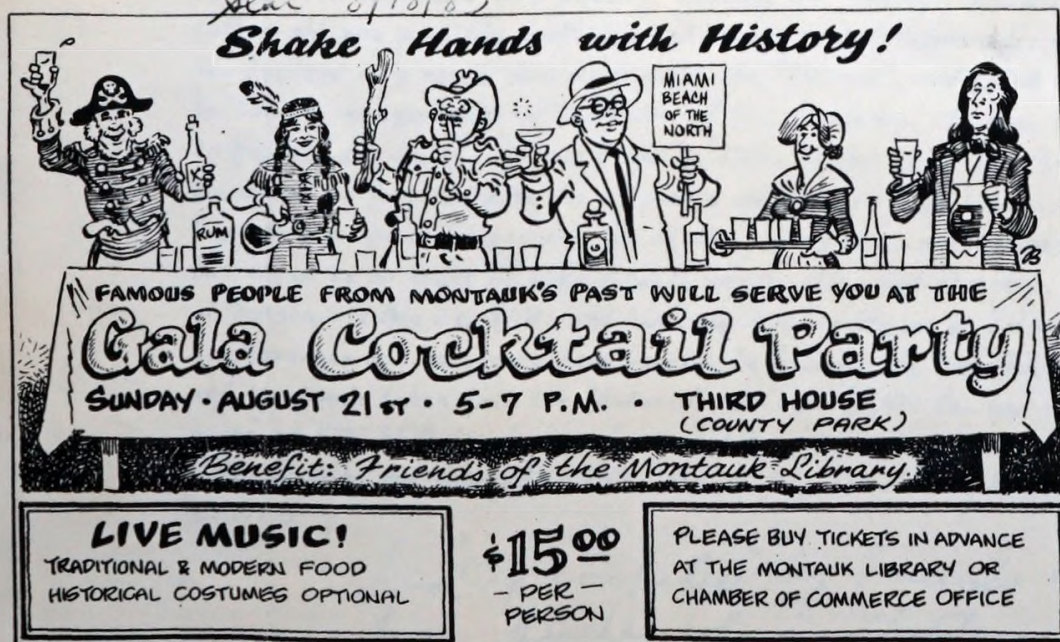 Star 8/18/83
Shake Hands with History!
MIAMI
BEACH
OF THE
NORTH
K
RUM
FAMOUS PEOPLE FROM MONTAUK'S PAST WILL SERVE YOU AT THE
Gala Cocktail Party
SUNDAY · AUGUST 21ST · 5-7 P.M. · THIRD HOUSE
(COUNTY PARK)
Benefit: Friends of the Montauk Library.
LIVE MUSIC!
TRADITIONAL & MODERN FOOD
HISTORICAL COSTUMES OPTIONAL
$15.00
- PER -
PERSON
PLEASE BUY TICKETS IN ADVANCE
AT THE MONTAUK LIBRARY OR
CHAMBER OF COMMERCE OFFICE